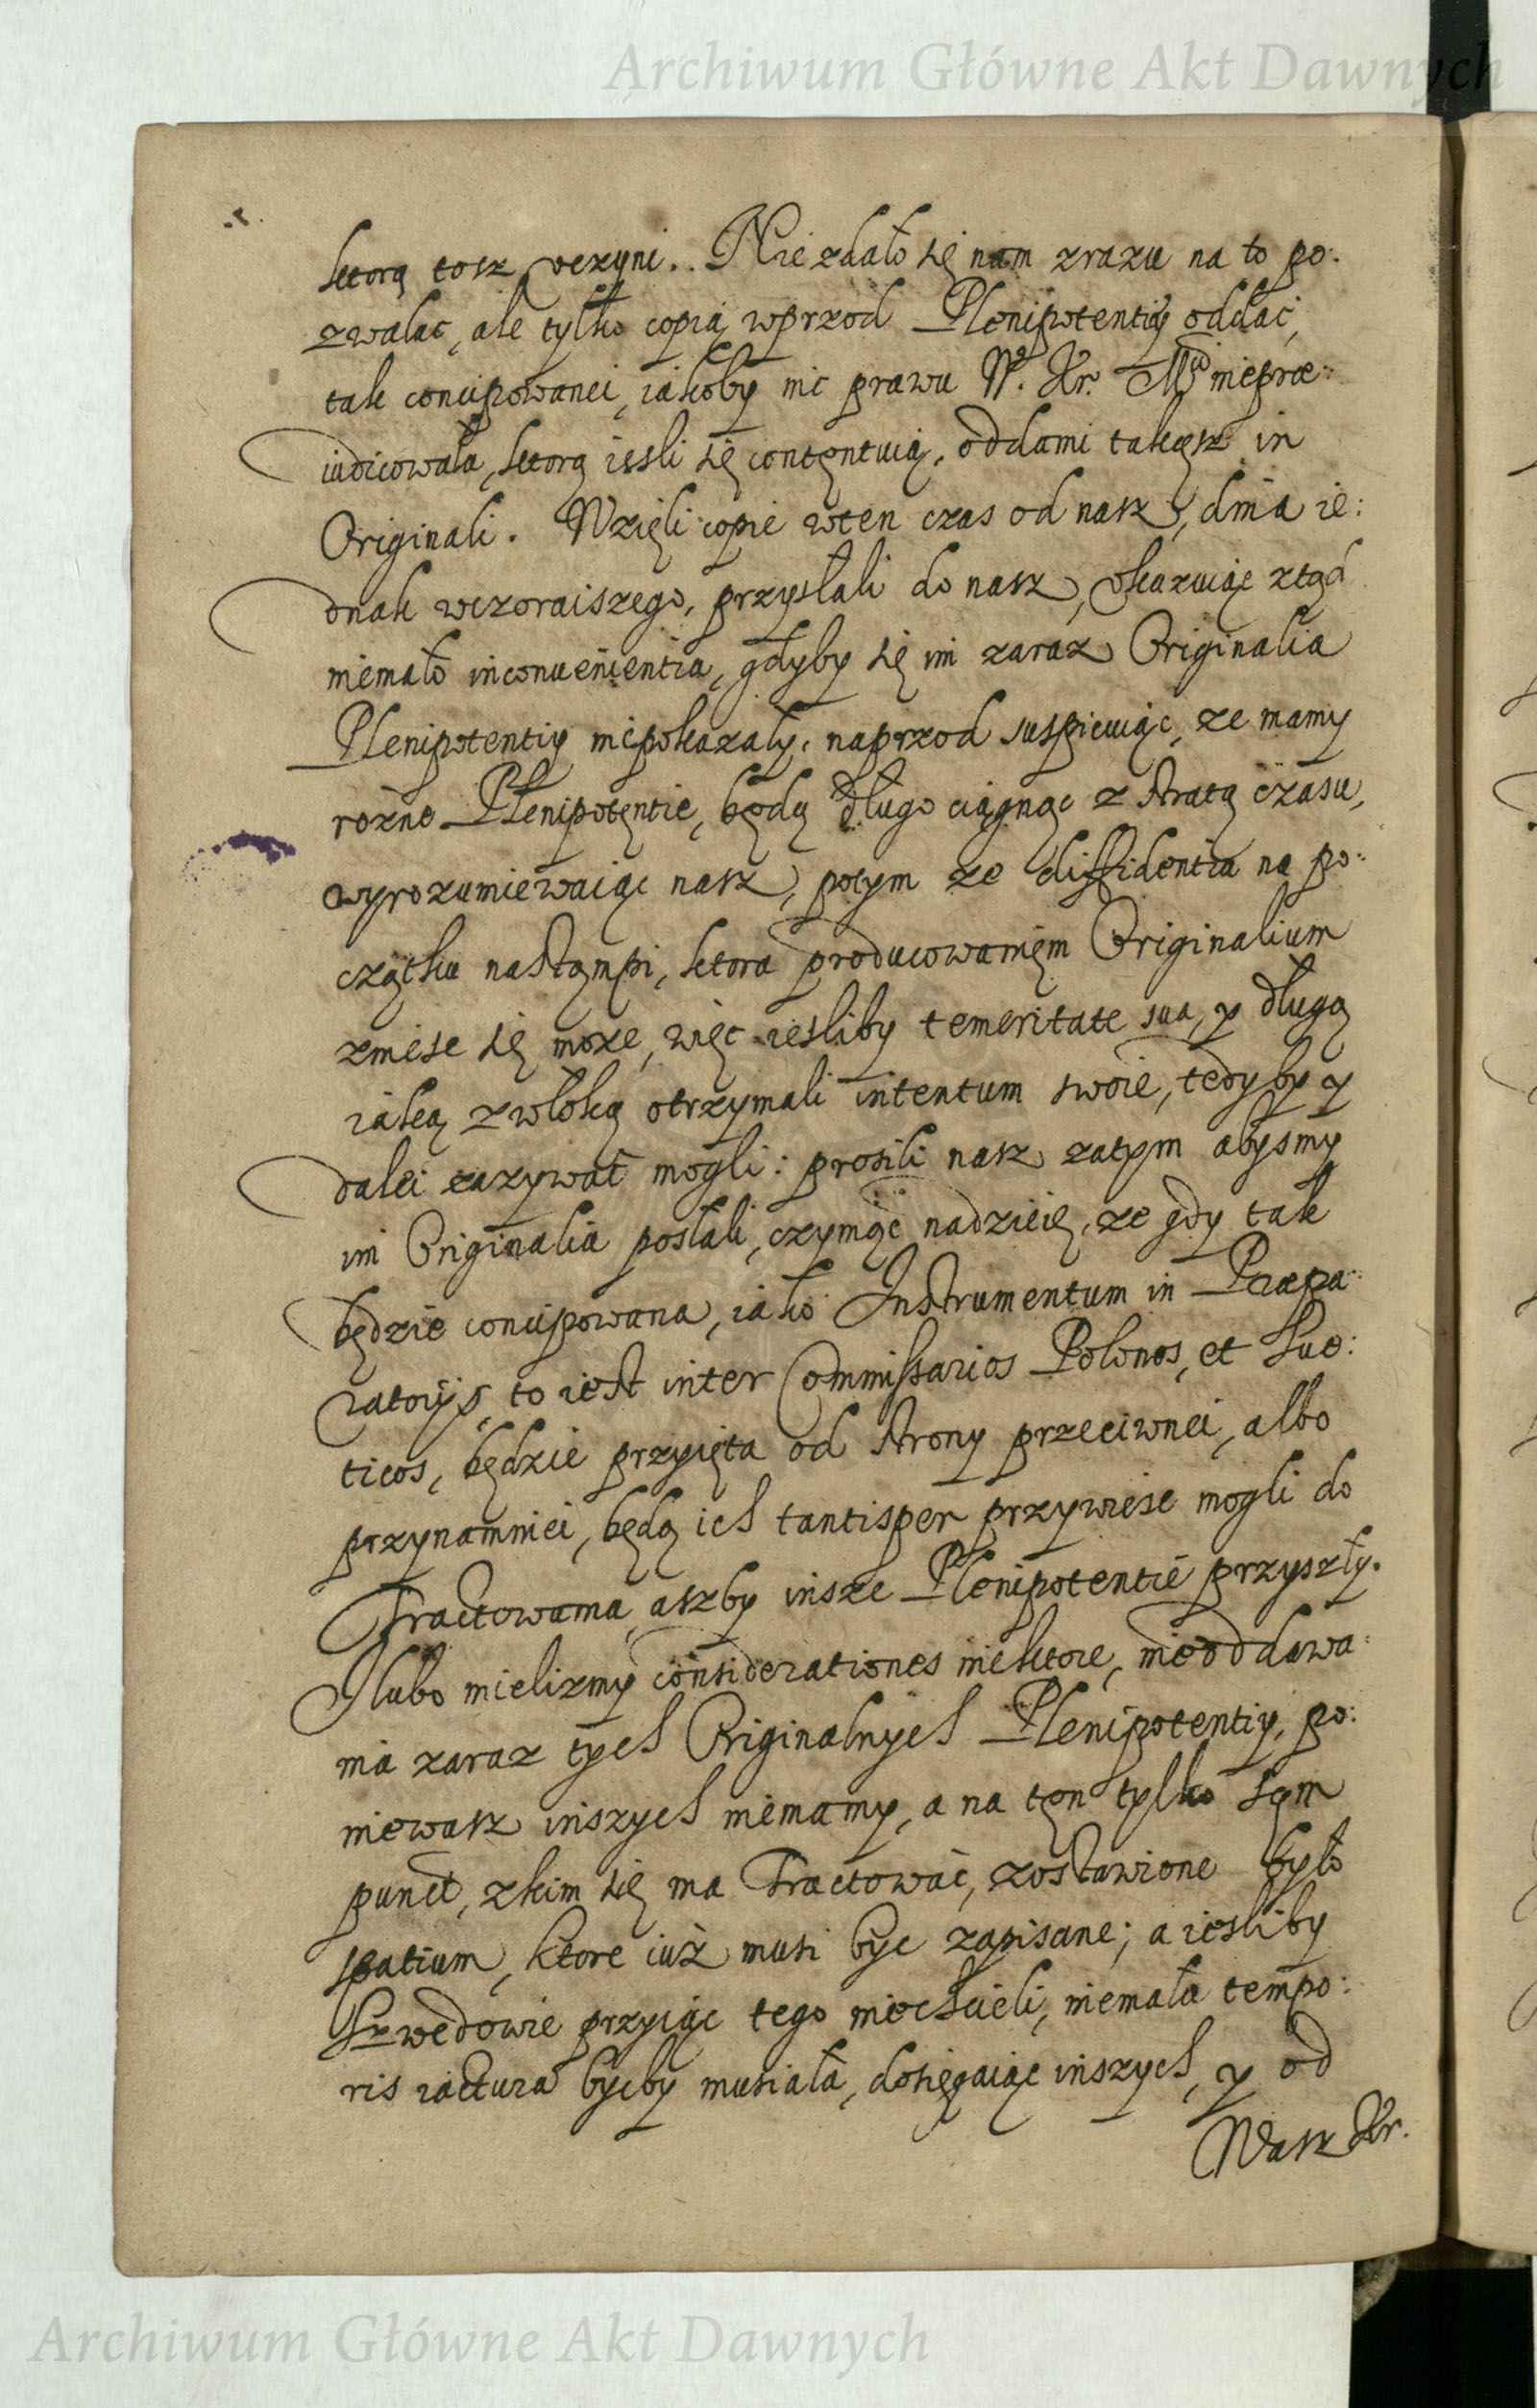 Archiwum Główne Akt Dawnych
ktorą tosz uczyni. Nie zdało się nam zrazu na to po:
zwalac, ale tylko copią wprzod Plenipotentiÿ oddać,
tak concipowanei, iakoby nic prawu W. Kr. Mci niepræ:
iudicowała, ktorą iesli się contentuią, oddami takąsz in
Originali. Wzięli copie wten czas od nasz, dnia ie:
dnak wczoraiszego, przysłali do nasz, okazuiąc ztąd
niemało inconuenientia, gdyby się im zaraz Originalia
Plenipotentiy niepokazały, naprzod suspicuiąc, ze mamy
rozne Plenipotentie, będą długo ciągnąc z stratą czasu,
wyrozumiewaiąc nasz, potym ze diffidentia na po:
czątku nastąmpi, ktora producowaniem Originalium
zniesc się moze, więc iesliby temeritate sua, y długą
iaką zwłoką otrzymali intentum swoie, tedyby y
dalei zazywać mogli: prosili nasz zatym abysmy
im Originalia posłali, czyniąc nadzieię, ze gdy tak
będzie concipowana, iako Instrumentum in Præpa:
ratorijs, to iest inter Commissarios Polonos, et Sue:
ticos, będzie przyięta od strony przeciwnei, albo
przynamniei, będą ich tantisper przywiesc mogli do
Tractowania, aszby insze Plenipotentie przyszły.
I lubo mielizmy considerationes niektore, nieoddawa:
nia zaraz tych Originalnych Plenipotentiy, po:
niewasz inszych niemamy, a na ten tylko sąm
punct, zkim się ma Tractować, zostawione było
spatium, ktore iuż musi byc zapisane; a iesliby
Szwedowie przyiąc tego niechcieli, niemała tempo:
ris iactura bycby musiała, dosięgaiąc inszych, y od
Wasz Kr.
Archiwum Główne Akt Dawnych